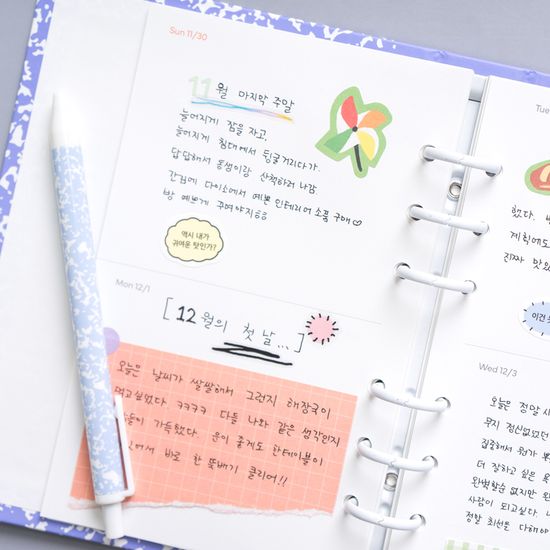 Sun 11/30
11월 마지막 주말
늘어지게 잠을 자고,
늘어지게 침대에서 뒹굴거리다가.
답답해서 동생이랑 산책하러 나감
간김에 다이소에서 예쁜 인테리어 소품 구매♡
방 예쁘게 꾸며야지ㅎㅎ
역시 내가
귀여운 탓인가?
Mon 12/1
[12월의 첫 날...]
오늘은 날씨가 쌀쌀해서 그런지 해장국이
먹고싶었다. ㅋㅋㅋㅋ 다들 나와 같은 생각인지
가득했다. 운이 좋게도 한테이블이
있어서 바로 한 뚝배기 클리어!!
Tue
했다.
계획에도
진짜 맛있
이건
Wed 12/3
오늘은 정말
무지 정신없었던
집중해서 뭔가
더 잘하고 싶은
완벽할순 없지만
사람이 되고싶다.
정말 최선을 다해야